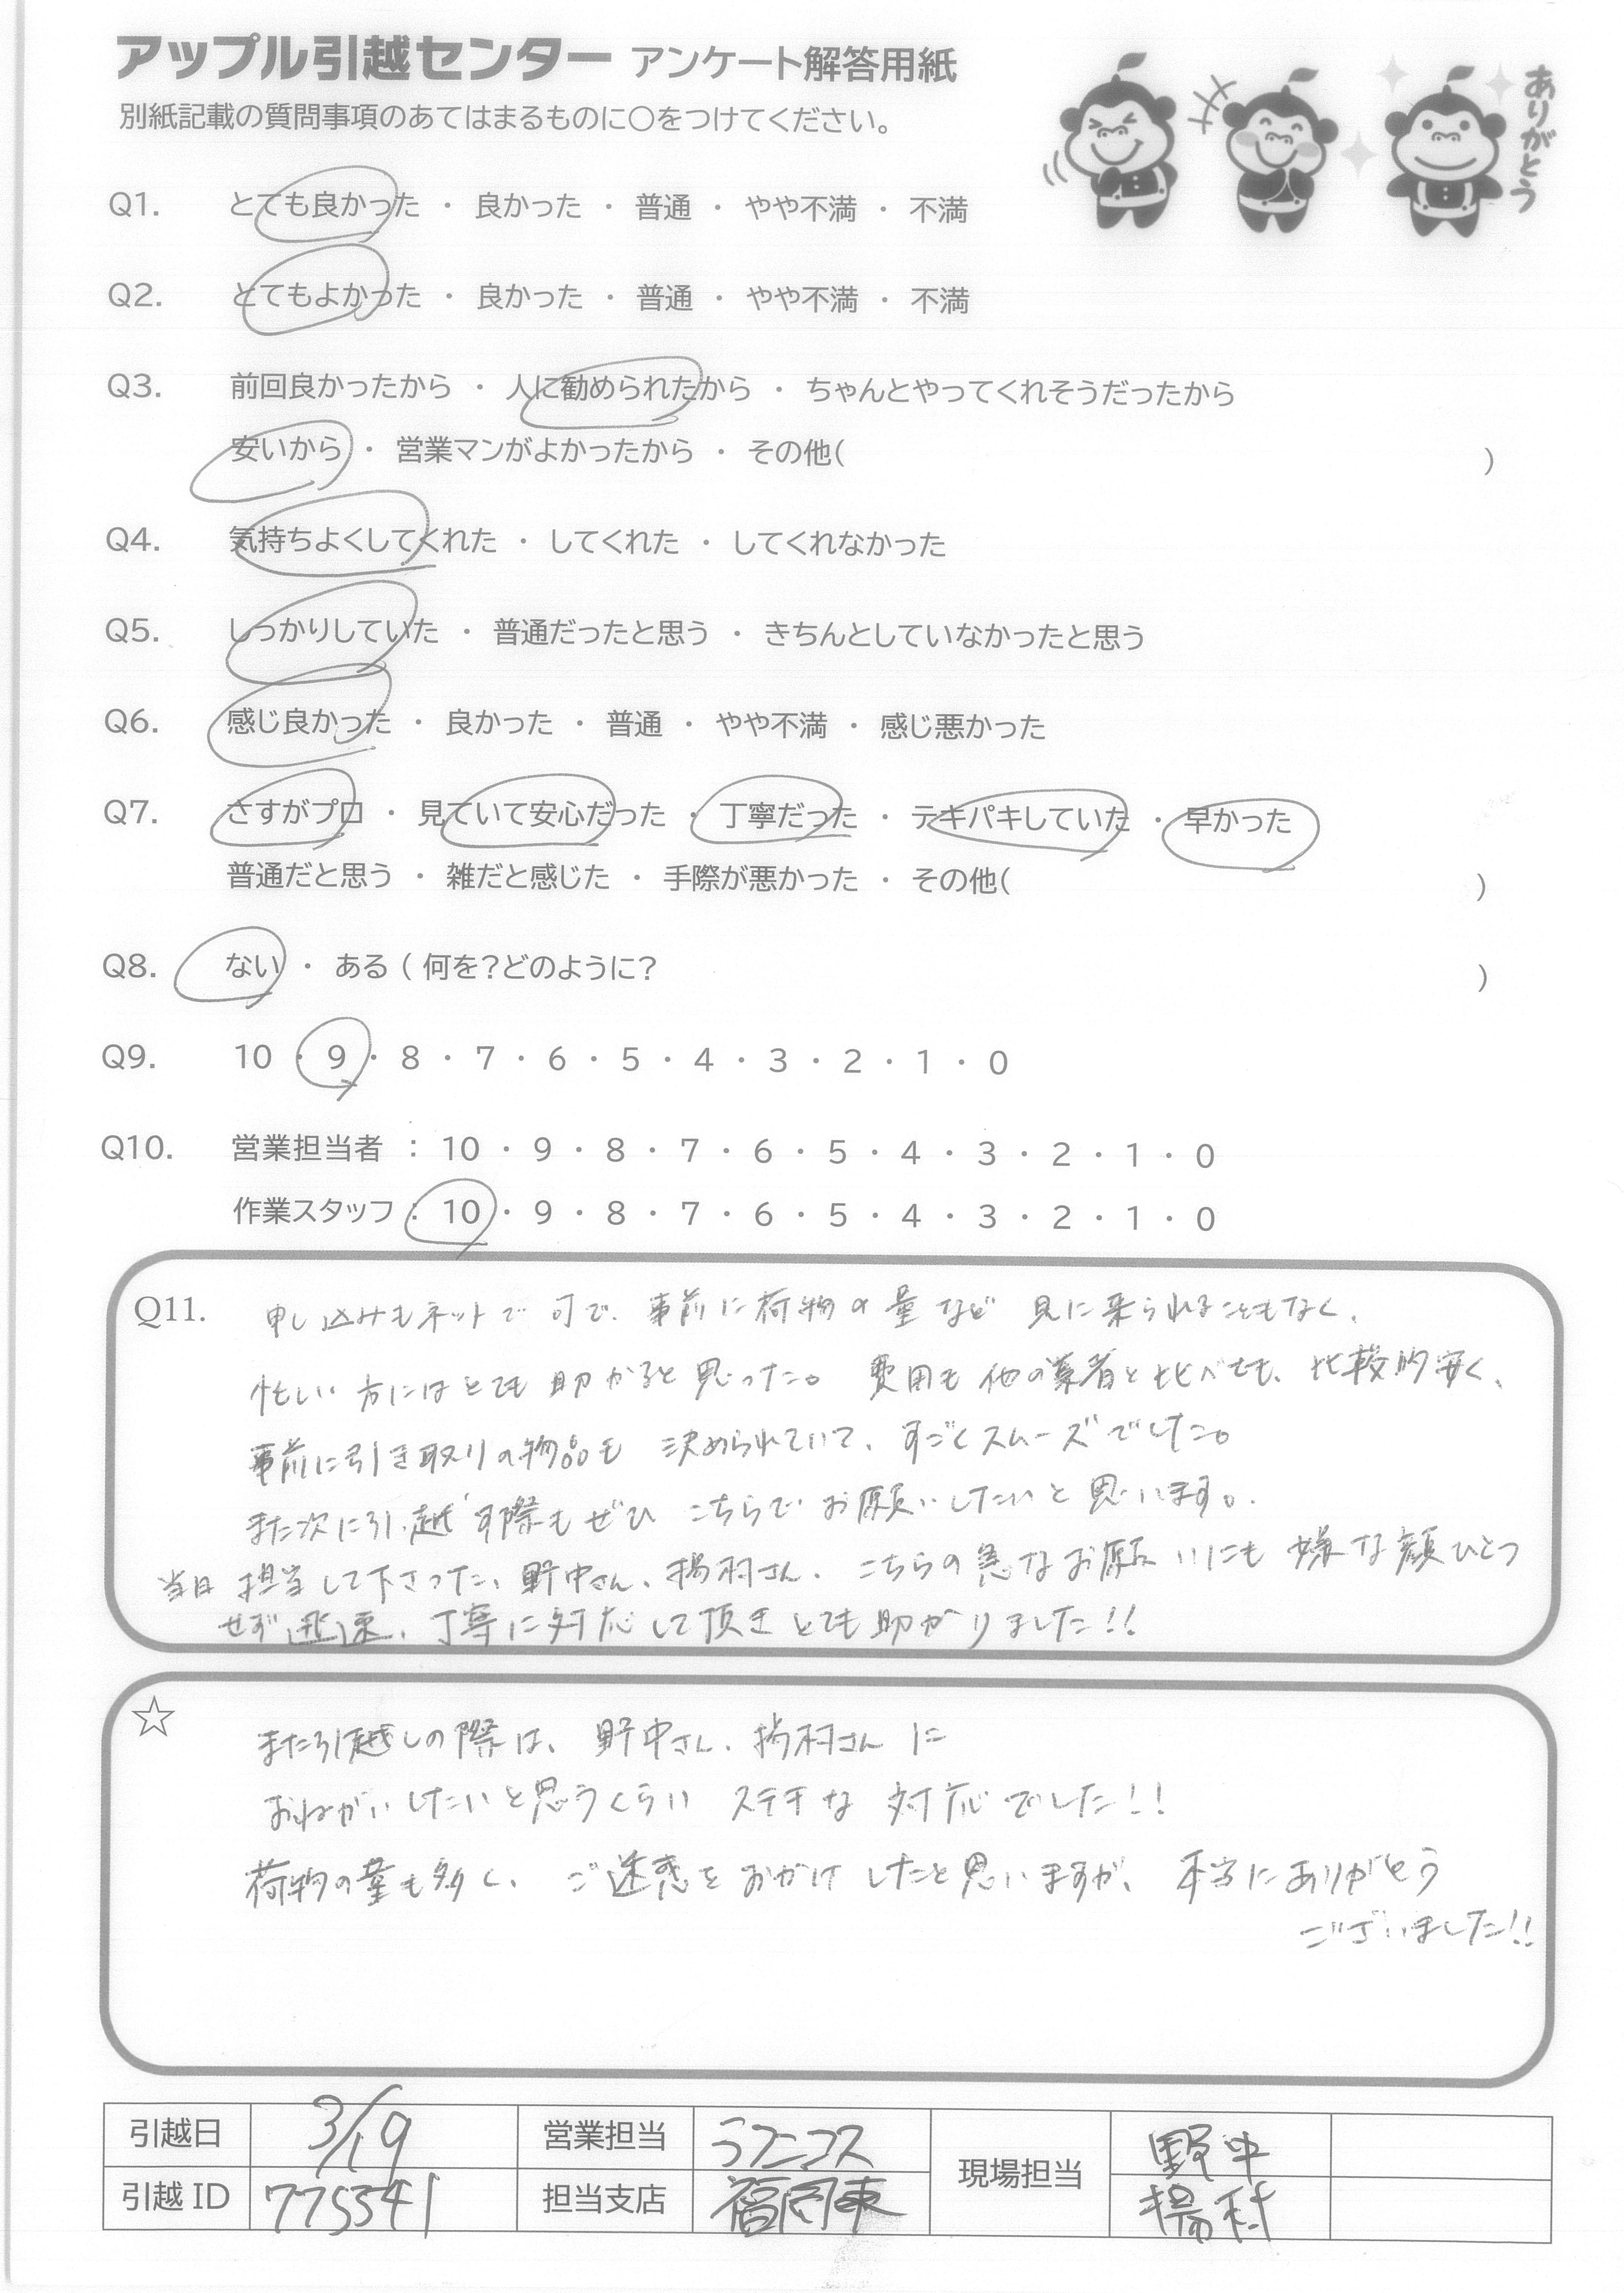 アップル引越センター アンケート解答用紙
別紙記載の質問事項のあてはまるものに〇をつけてください。
ありがとう
Q1. とても良かった ・ 良かった ・ 普通 ・ やや不満 ・ 不満
Q2. とてもよかった ・ 良かった ・ 普通 ・ やや不満 ・ 不満
Q3. 前回良かったから ・ 人に勧められたから ・ ちゃんとやってくれそうだったから
安いから ・ 営業マンがよかったから ・ その他( )
Q4. 気持ちよくしてくれた ・ してくれた ・ してくれなかった
Q5. しっかりしていた ・ 普通だったと思う ・ きちんとしていなかったと思う
Q6. 感じ良かった ・ 良かった ・ 普通 ・ やや不満 ・ 感じ悪かった
Q7. さすがプロ ・ 見ていて安心だった ・ 丁寧だった ・ テキパキしていた ・ 早かった
普通だと思う ・ 雑だと感じた ・ 手際が悪かった ・ その他( )
Q8. ない ・ ある ( 何を?どのように? )
Q9. 10 ・ 9 ・ 8 ・ 7 ・ 6 ・ 5 ・ 4 ・ 3 ・ 2 ・ 1 ・ 0
Q10. 営業担当者 : 10 ・ 9 ・ 8 ・ 7 ・ 6 ・ 5 ・ 4 ・ 3 ・ 2 ・ 1 ・ 0
作業スタッフ : 10 ・ 9 ・ 8 ・ 7 ・ 6 ・ 5 ・ 4 ・ 3 ・ 2 ・ 1 ・ 0
Q11. 申し込みもネットで可で、事前に荷物の量など 見に来られることもなく、
忙しい方にはとても助かると思った。 費用も他の業者と比べても、比較的安く、
事前に引き取りの物品も 決められていて、すごくスムーズでした。
また次に引っ越す際もぜひ こちらでお願いしたいと思います。
当日 担当して下さった、野中さん、楊村さん、こちらの急なお願いにも嫌な顔ひとつ
せず迅速、丁寧に対応して頂きとても助かりました!!
☆ また引越しの際は、野中さん、楊村さんに
おねがいしたいと思うくらい ステキな対応でした!!
荷物の量も多く、ご迷惑をおかけしたと思いますが、本当にありがとう
ございました!!
引越日 3/19 営業担当 ラフニコス 現場担当 野中
引越ID 775341 担当支店 福岡東 楊村